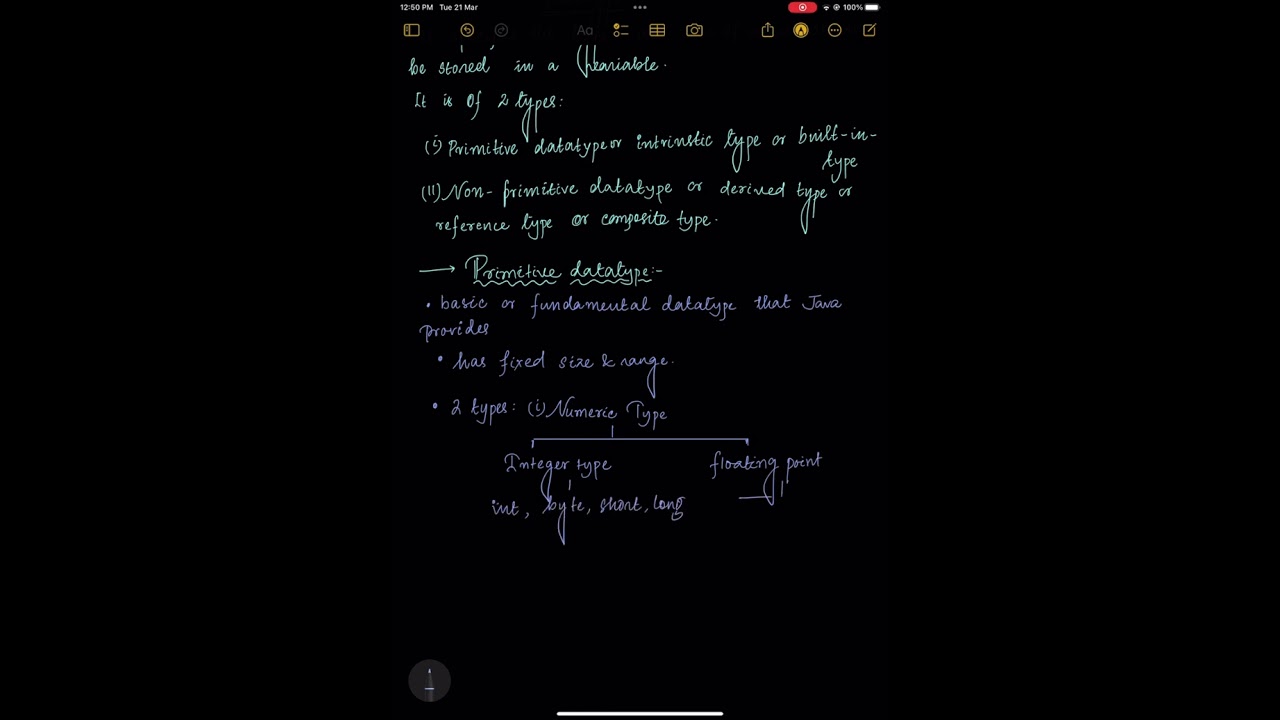 12:50 PM Tue 21 Mar
100%
Aa
be stored in a variable.
It is Of 2 types:
(i) Primitive datatype or intrinstic type or built-in-
type
(II) Non-primitive datatype or derived type or
reference type or composite type.
→ Primitive datatype:-
• basic or fundamental datatype that Java
provides
• has fixed size & range.
• 2 types: (i) Numeric Type
Integer type floating point
int, byte, short, long